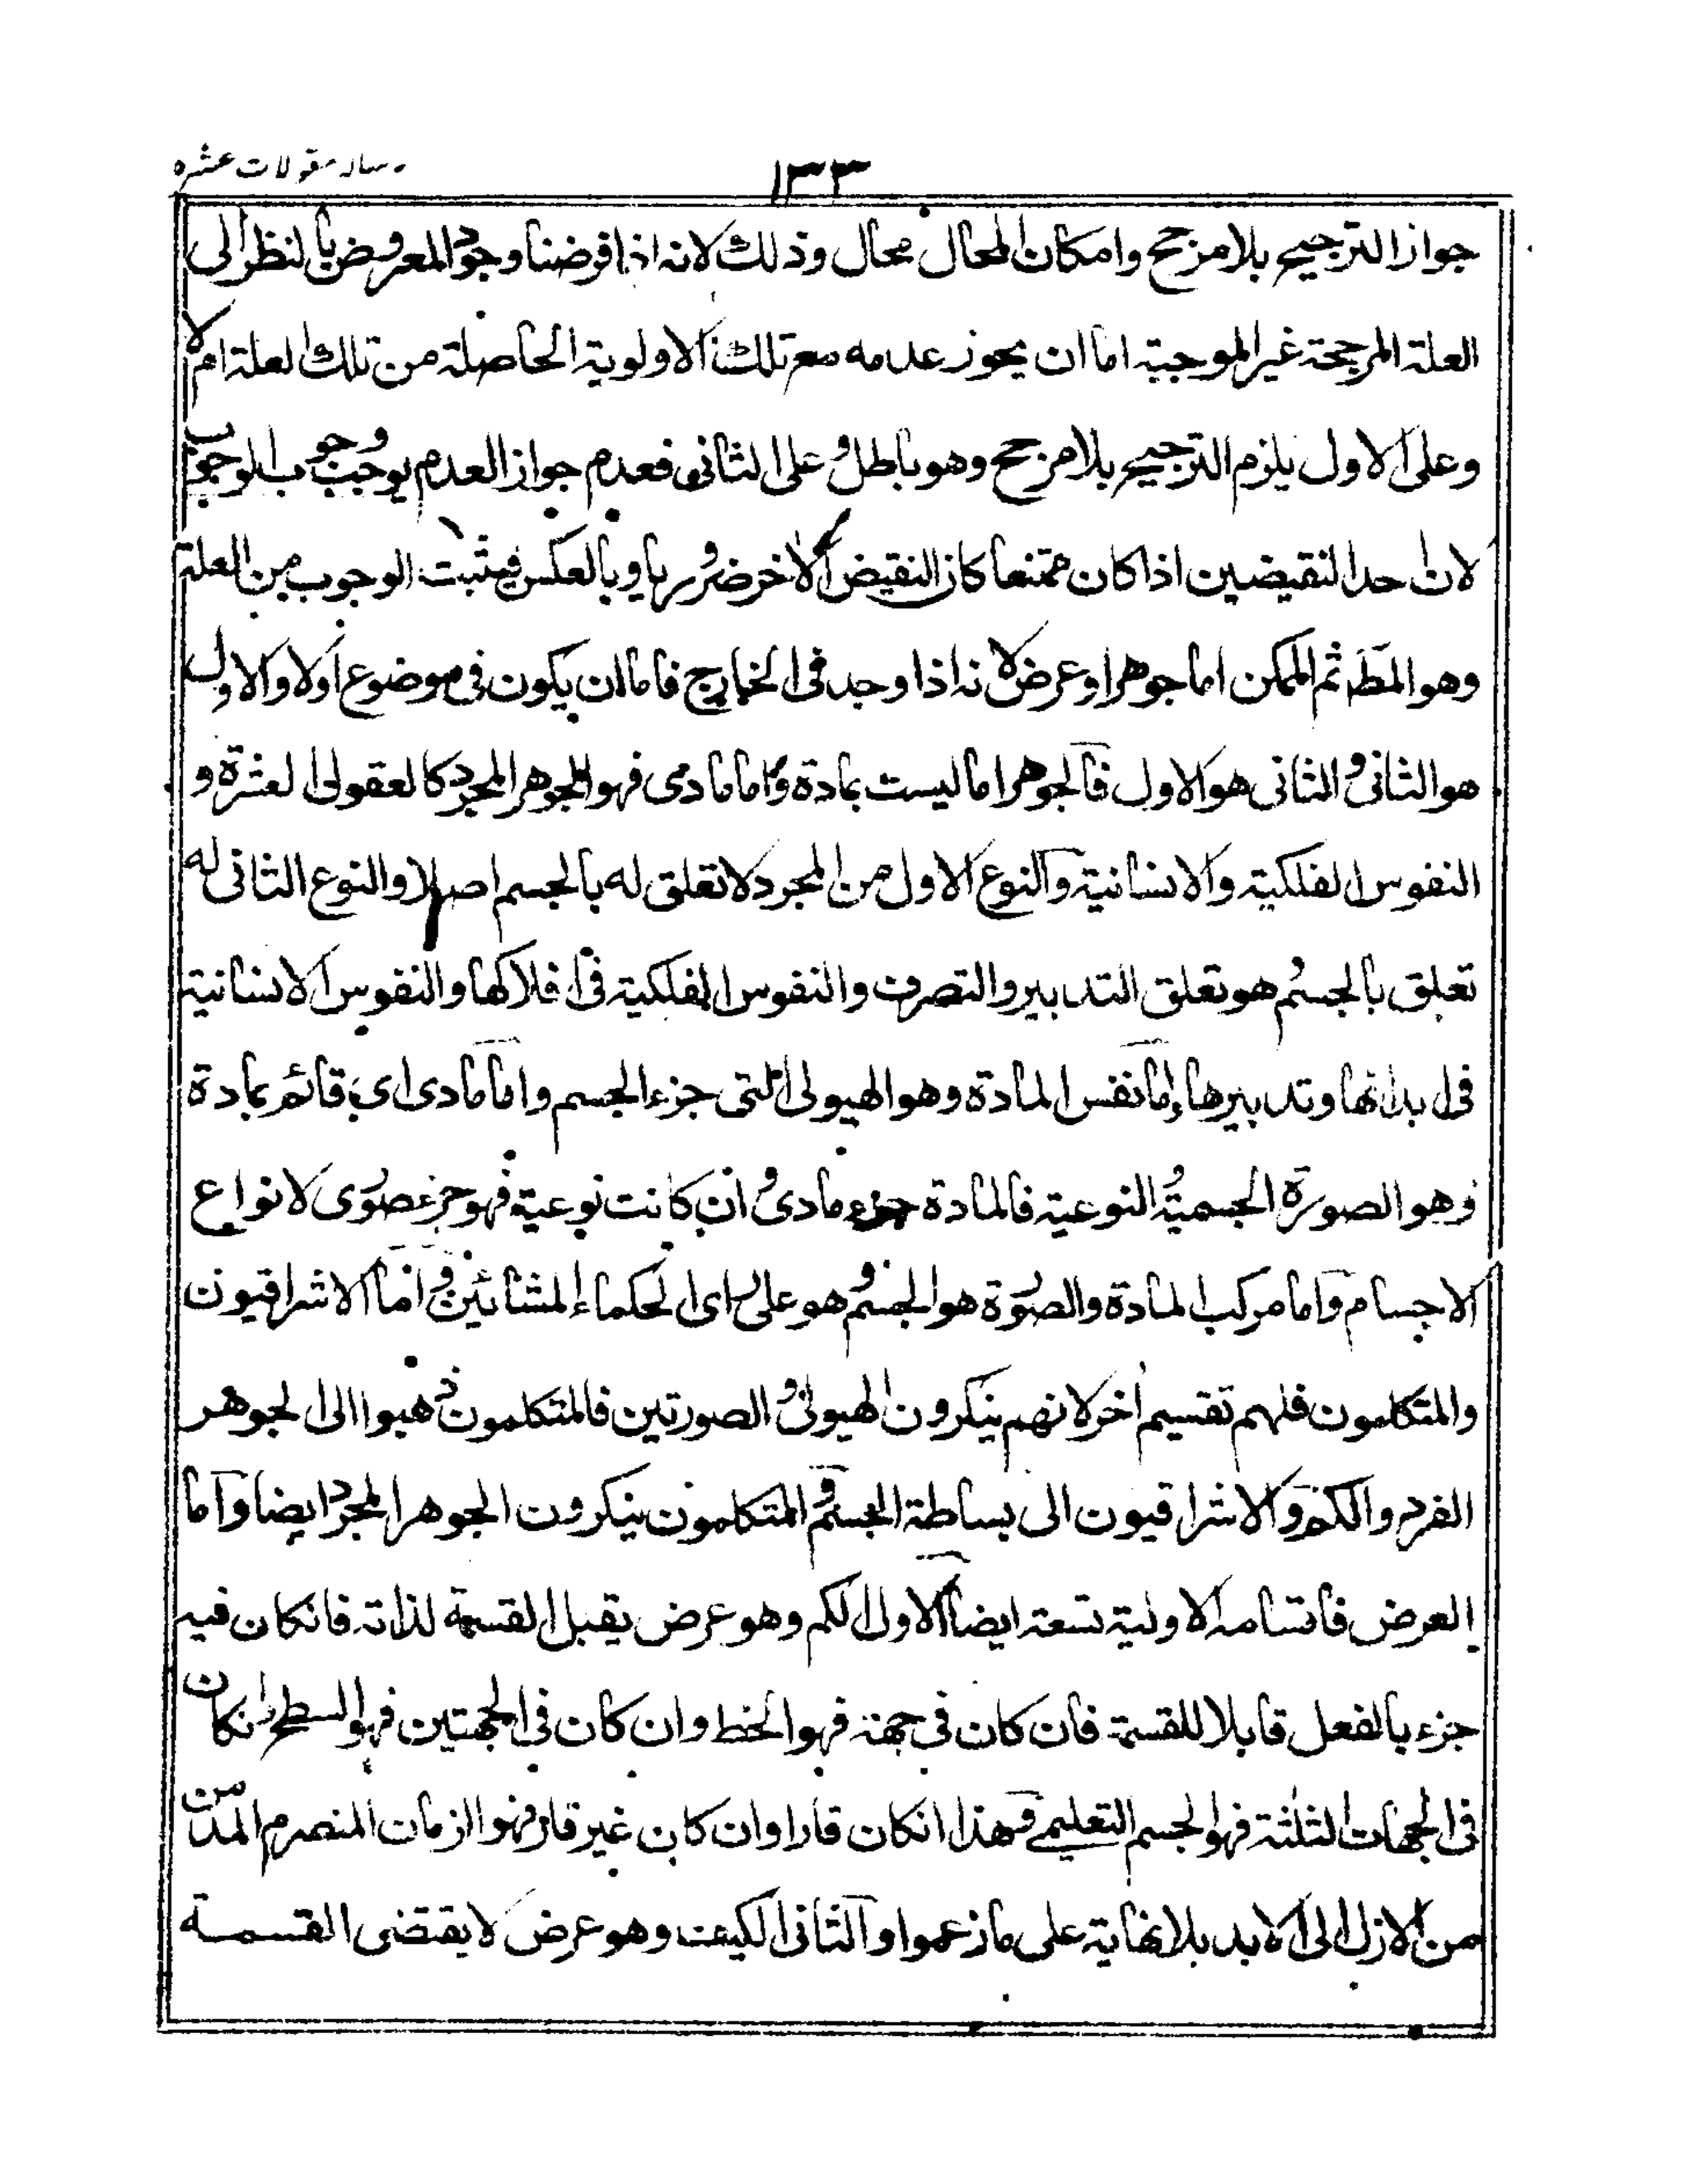 رساله مقولات عشره
١٣٣
جواز الترجيح بلا مرجح وامكان المحال محال وذلك لانه اذا فرضنا وجود المعروض بالنظر الى
العلة المرجحة غير الموجبة اما ان يجوز عدمه مع تلك الاولوية الحاصلة من تلك العلة ام لا
وعلى الاول يلزم الترجيح بلا مرجح وهو باطل وعلى الثانى فعدم جواز العدم يوجب وجوب الوجود
لان احد النقيضين اذا كان ممتنعا كان النقيض الاخر ضروريا وبالعكس فيثبت الوجوب من العلة
وهو المط ثم الممكن اما جوهر او عرض لانه اذا وجد فى الخارج فاما ان يكون فى موضوع اولا والاول
هو الثانى والثانى هو الاول فالجوهر اما ليست بمادة واما مادى فهو الجوهر المجرد كالعقول العشرة و
النفوس الفلكية والانسانية والنوع الاول من المجرد لا تعلق له بالجسم اصلا والنوع الثانى له
تعلق بالجسم وهو تعلق التدبير والتصرف والنفوس الفلكية فى افلاكها والنفوس الانسانية
فى ابدانها وتدبيرها واما نفس المادة وهو الهيولى التى جزء الجسم واما مادى اى قائم بمادة
وهو الصورة الجسمية والنوعية فالمادة جزء مادى وان كانت نوعية فهو جزء صورى لانواع
الاجسام واما مركب المادة والصورة هو الجسم وهو على راى الحكماء المشائين واما الاشراقيون
والمتكلمون فلهم تقسيم اخر لانهم ينكرون الهيولى والصورتين فالمتكلمون ذهبوا الى الجوهر
الفرد والكم والاشراقيون الى بساطة الجسم والمتكلمون ينكرون الجوهر المجرد ايضا واما
العرض فاقسامه الاولية تسعة ايضا الاول الكم وهو عرض يقبل القسمة لذاته فانكان فيه
جزء بالفعل قابلا للقسمة فان كان فى جهة فهو الخط وان كان فى الجهتين فهو السطح وانكان
فى الجهات الثلثة فهو الجسم التعليمى وهذا انكان قارا وان كان غير قار فهو الزمان المنصرم
من الازل الى الابد بلا نهاية على ما زعموا والثانى الكيف وهو عرض لا يقتضى القسمة